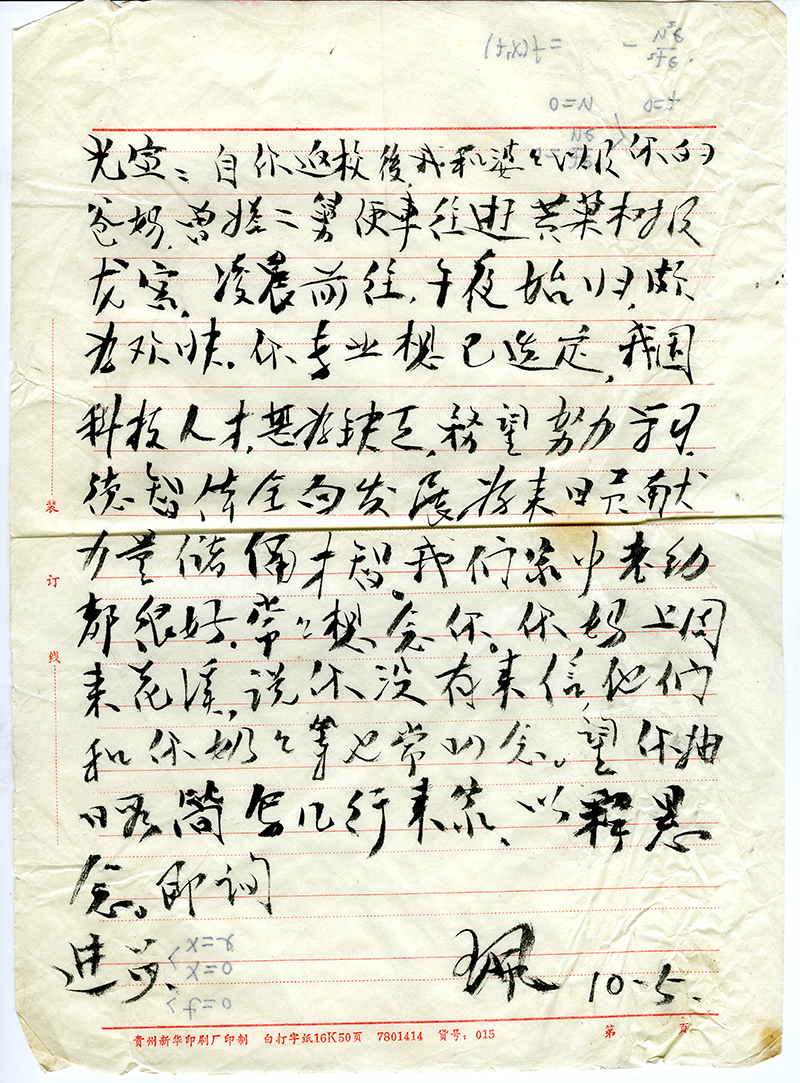 光宣：自你返校後，我和婆々以及你的
爸妈，曾
便車往逛黄菓树及
龙宫，凌晨前往，午夜始归，颇
为欢快。你专业想已选定，我国
科技人才，甚为缺乏，务望努力学习，
德智体全面发展，为来日贡献
力量储备才智。我们家中老幼
都很好，常々想念你。你妈上周
来花溪，说你没有来信，他们
和你奶々等也常叨念。望你抽
暇简写几行来筑，以释悬
念。即询
进步。
珮 10-5.
装
订
线
贵州新华印刷厂印制 白打字纸16K50页 7801414 货号：015
第 页
= f(x,t)
t=0 u=0
x=x
x=0
t=0